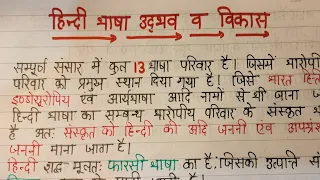 हिन्दी भाषा उद्भव व विकास
सम्पूर्ण संसार में कुल 13 भाषा परिवार है। जिसमें भारोपी
परिवार को प्रमुख स्थान दिया गया है। जिसे भारत हित्ती
इण्डोयुरोपीय एवं आर्यभाषा आदि नामों से भी जाना ज
हिन्दी भाषा का सम्बन्ध भारोपीय परिवार के संस्कृत भ
है अतः संस्कृत को हिन्दी की आदि जननी एवं अपभ्रंश
जननी माना जाता है।
हिन्दी शब्द मूलतः फारसी भाषा का है; जिसकी उत्पत्ति सं